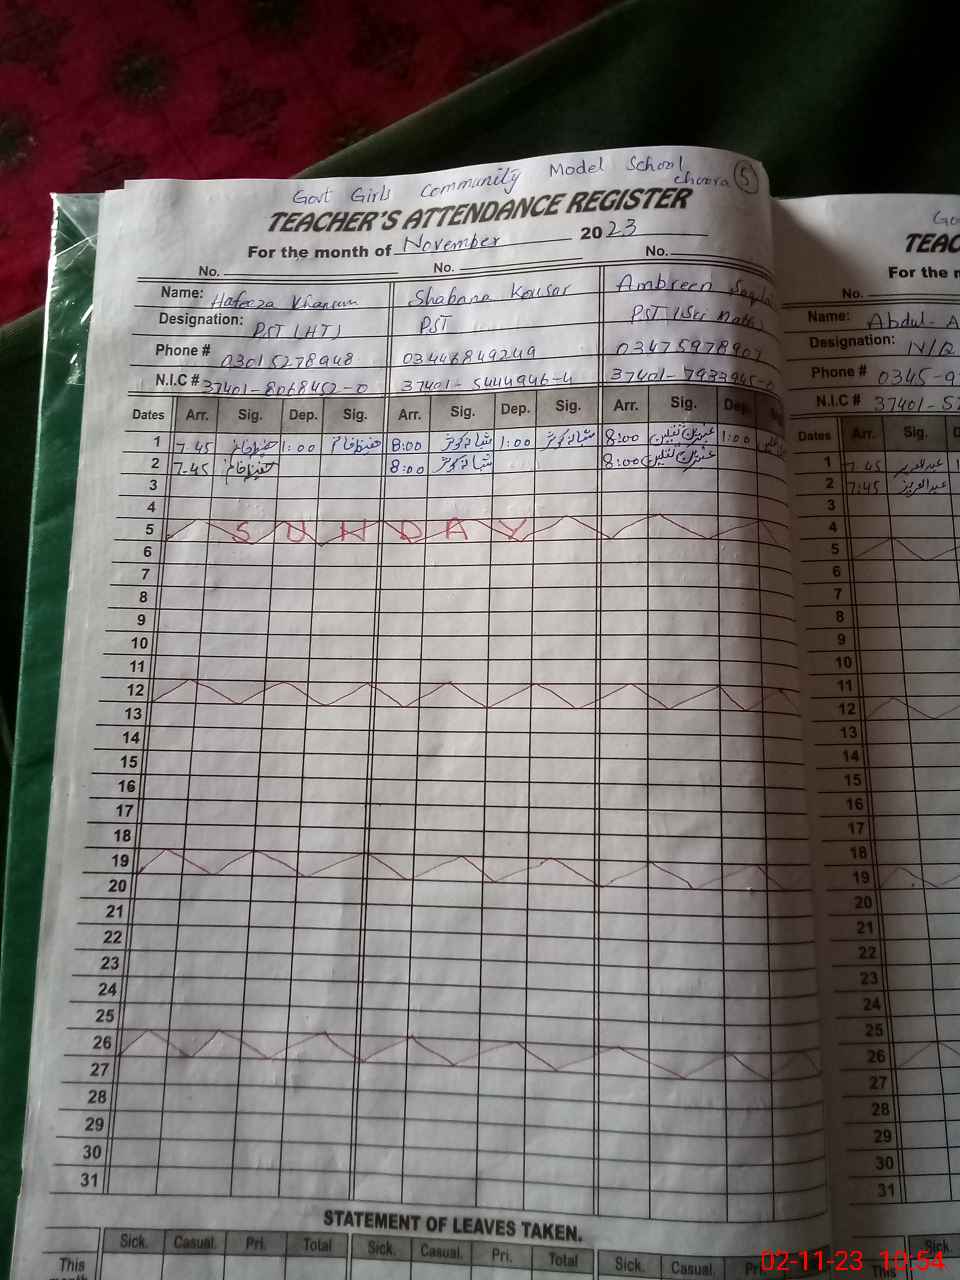 Govt Girls Community Model School
choora 5
TEACHER'S ATTENDANCE REGISTER
For the month of November 2023
No. No. No.
Name: Hafeeza Khanum Shabana Kousar Ambreen
Designation: PST (HT) PST PST (Sci Math)
Phone # 03015278948 03446849249 03475978907
N.I.C # 37401-8068452-0 37401-5444946-4 37401-7933945-
Dates Arr. Sig. Dep. Sig. Arr. Sig. Dep. Sig. Arr. Sig. Dep.
1 7.45 حفیظ خانم 1:00 حفیظ خانم 8:00 شبانہ کوثر 1:00 شبانہ کوثر 8:00 عنبرین ثقلین 1:00
2 7.45 حفیظ خانم 8:00 شبانہ کوثر 8:00 عنبرین ثقلین
3
4
5 SUNDAY
6
7
8
9
10
11
12
13
14
15
16
17
18
19
20
21
22
23
24
25
26
27
28
29
30
31
STATEMENT OF LEAVES TAKEN.
Sick. Casual. Pri. Total Sick. Casual. Pri. Total Sick. Casual.
This
TEAC
For the m
No.
Name: Abdul-A
Designation: N/Q
Phone # 0345-9
N.I.C # 37401-52
Dates Arr. Sig.
1 7.45 عبدالعزیز
2 7:45 عبدالعزیز
3
4
5
6
7
8
9
10
11
12
13
14
15
16
17
18
19
20
21
22
23
24
25
26
27
28
29
30
31
Sick.
This
02-11-23 10:54